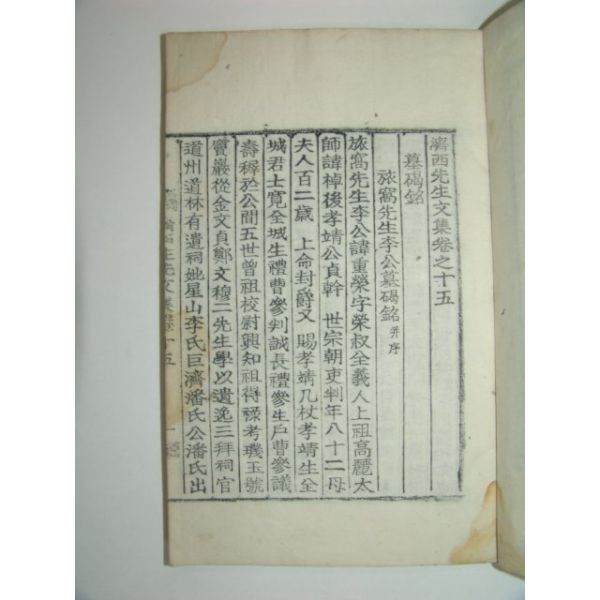 濟西先生文集卷之十五
墓碣銘
旅窩先生李公墓碣銘 幷序
旅窩先生李公諱重榮字榮叔全義人上祖高麗太
師諱棹後孝靖公貞幹 世宗朝吏判年八十二母
夫人百二歲 上命封爵又 賜孝靖几杖孝靖生全
城君士寬全城生禮曹參判誠長禮參生戶曹參議
壽稺於公間五世曾祖校尉興知祖得祿考璣玉號
寶巖從金文貞鄭文穆二先生學以遺逸三拜祠官
道州道林有遺祠妣星山李氏巨濟潘氏公潘氏出